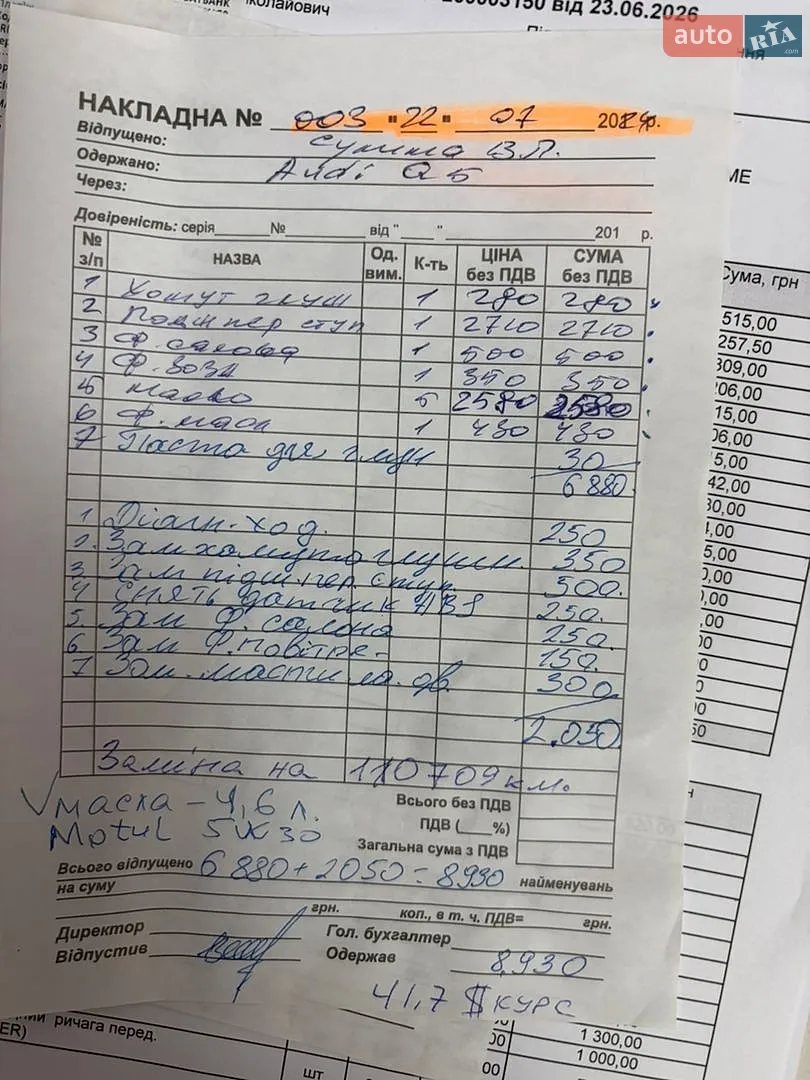 колайович
від 23.06.2026
auto RIA.com
НАКЛАДНА № 003 "22" 07 2024р.
Відпущено:
Одержано: Audi Q5
Через:
Довіреність: серія № від " " 201 р.
№ з/п НАЗВА Од. вим. К-ть ЦІНА без ПДВ СУМА без ПДВ
1 Хомут глуш 1 280 280
2 Підш пер ступ 1 2710 2710
3 Ф. салона 1 500 500
4 Ф. возд 1 350 350
5 масло 5 2580 2580
6 Ф. масл 1 430 430
7 Паста для глуш 30
6 880
1 Діагн. ход. 250
2. Зам хомута глуш. 350
3 Зам підш. пер. ступ. 500.
4 Снять датчик ABS 250.
5. Зам Ф. салона 250
6 Зам Ф. повітря. 150
7 Зам. мастила. дв. 300
2.050
Заміна на 110709 км.
Всього без ПДВ
V масла - 4,6 л.
ПДВ (___%)
Motul 5W30
Загальна сума з ПДВ
Всього відпущено 6 880 + 2050 = 8930 найменувань
на суму
грн. коп., в т. ч. ПДВ= грн.
Директор Гол. бухгалтер
Відпустив Одержав 8,930
41,7 $ курс
МЕ
Сума, грн
515,00
257,50
309,00
206,00
15,00
06,00
5,00
42,00
30,00
,00
5,00
0,00
,00
ричага перед.
ER)
шт
1 300,00
1 000,00